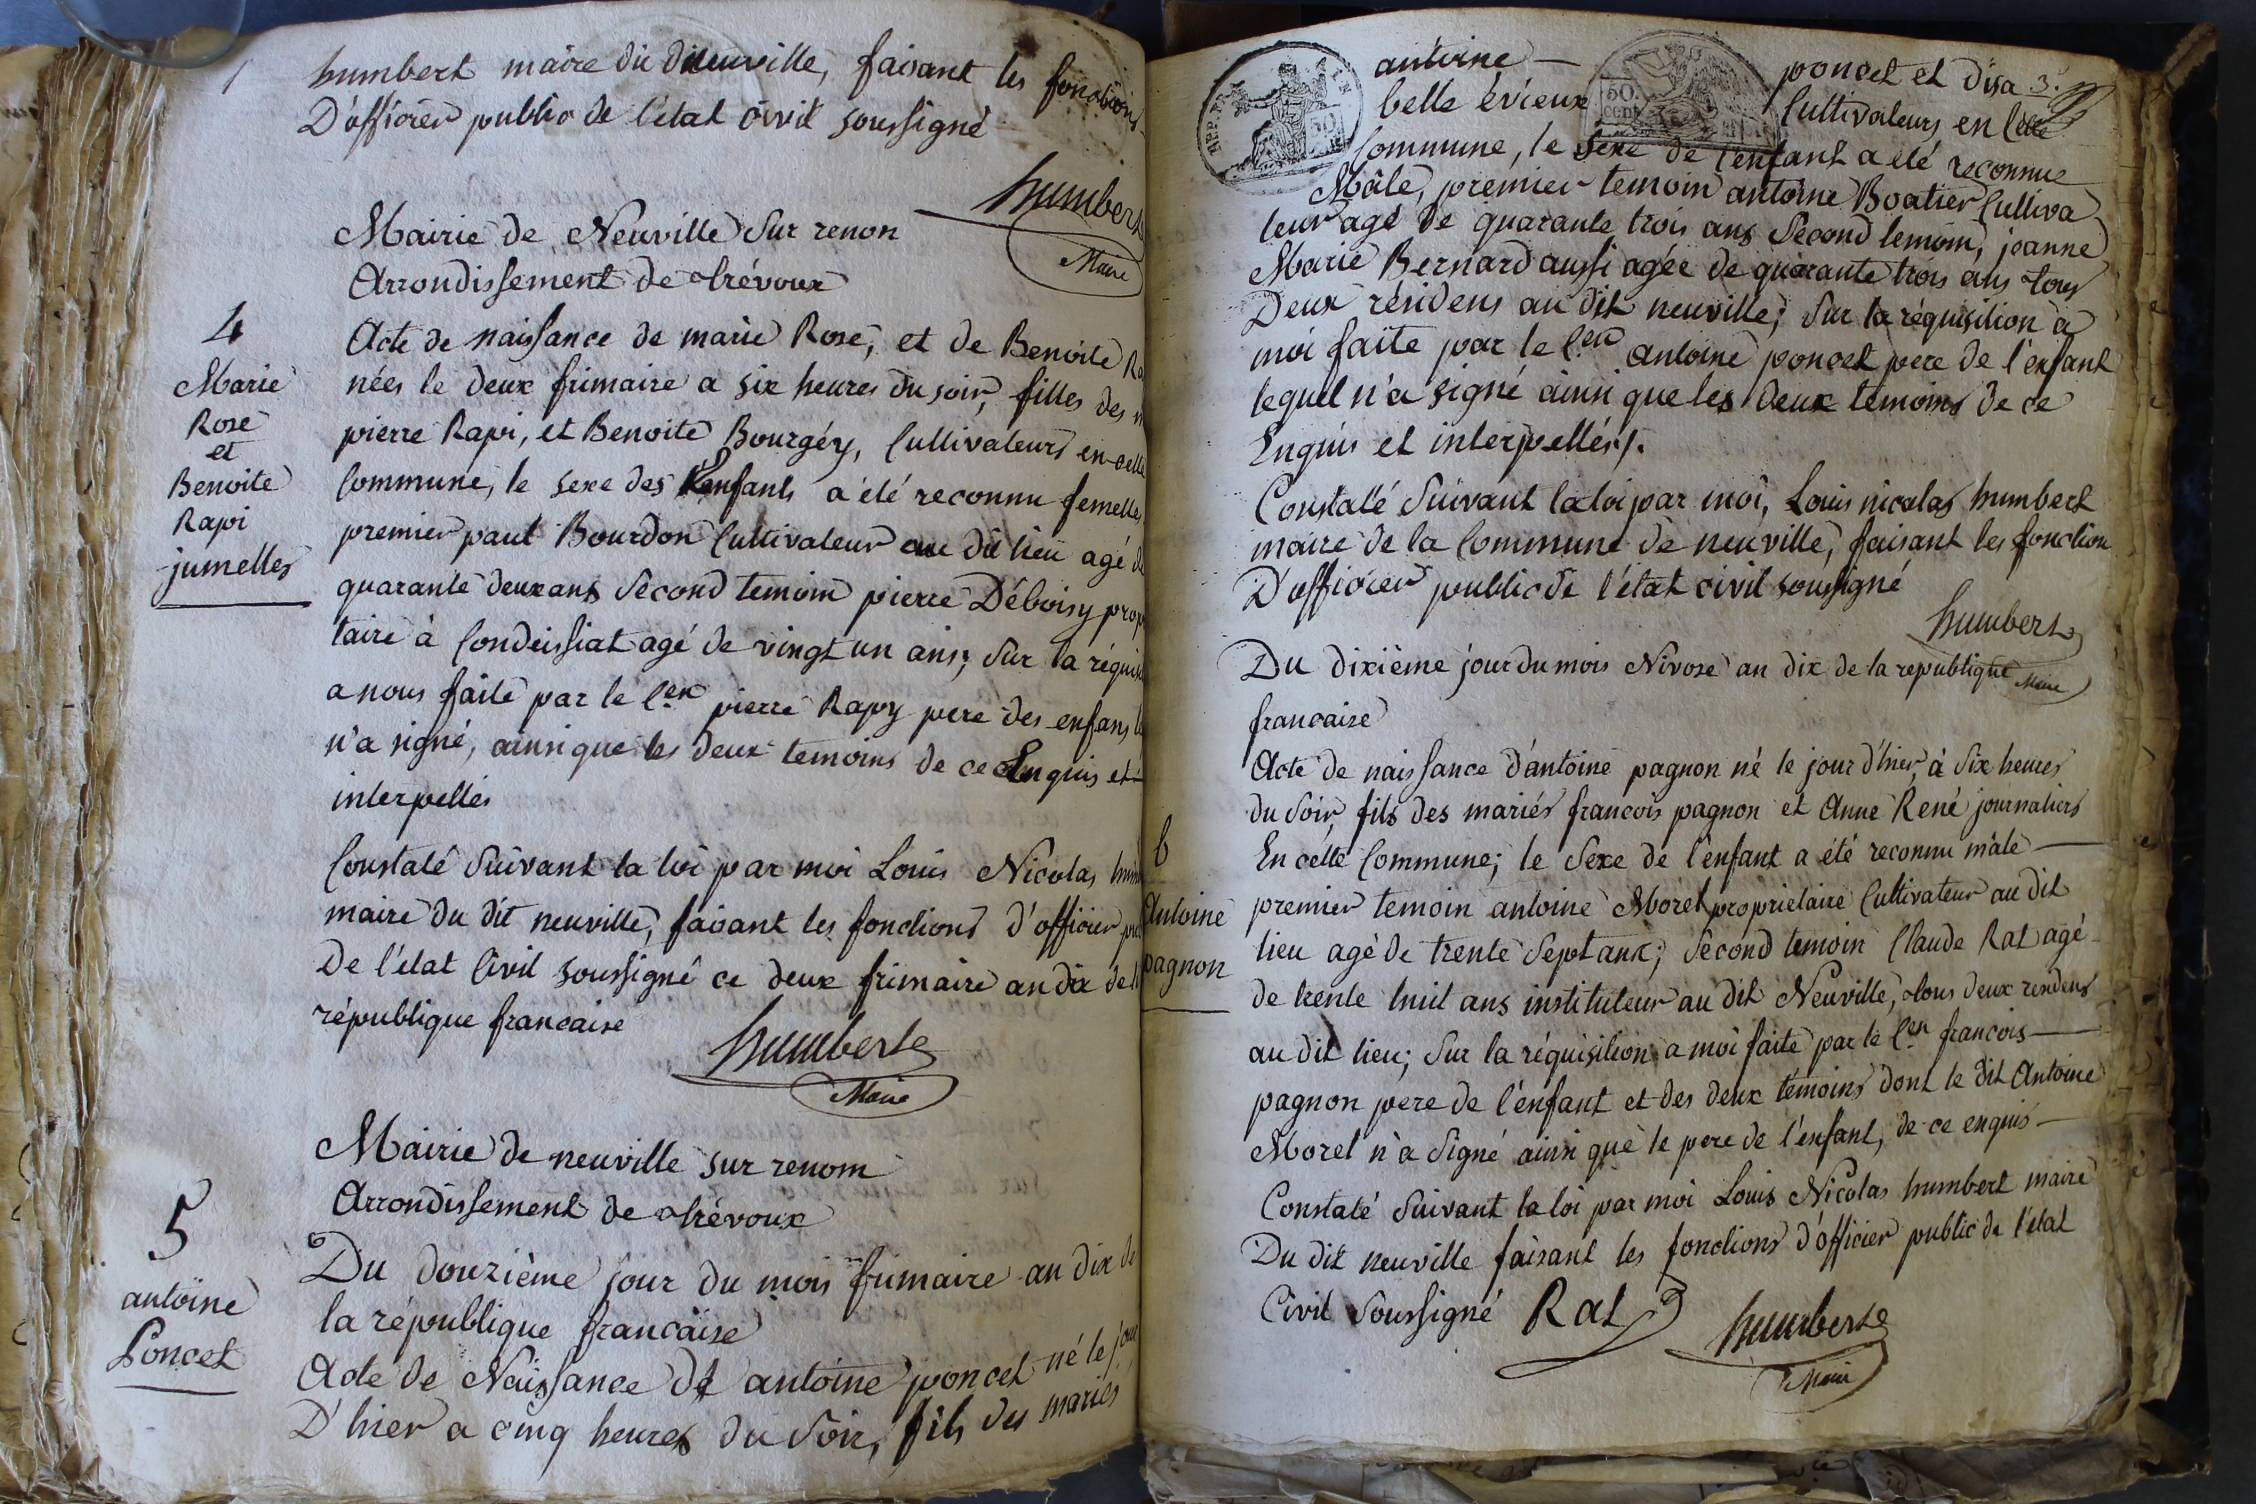 humbert maire du dit neuville, faisant les fonctions
D'officier public de l'etat civil soussigné
humbert
Maire
Mairie de Neuville sur renon
Arrondissement de trévoux
4
Marie
Rose
et
Benoite
Rapi
jumelles
Acte de naissance de marie Rose, et de Benoite
nées le deux frimaire a six heures du soir, filles des
pierre Rapi, et Benoite Bourgéy, Cultivateurs en cette
Commune, le sexe des enfants a été reconnu femelles
premier paul Bourdon Cultivateur au dit lieu agé de
quarante deux ans Sécond temoin pierre Déboisy prop
taire à Condeissiat agé de vingt un ans; sur la réquis
a nous faite par le C.en pierre Rapy pere des enfans
n'a signé, ainsi que les deux temoins de ce Enquis et
interpellés
Constaté suivant la loi par moi Louis Nicolas
maire du dit neuville, faisant les fonctions d'officier
De l'etat Civil soussigné ce deux frimaire an dix de
république francaise
humbert
Maire
Mairie de neuville sur renom
Arrondissement de trévoux
5
antoine
Poncet
Du douzième jour du mois frimaire an dix de
la république francaïse
Acte de Naissance de antoine poncet né le jour
D'hier a cinq heures du soir, fils des mariés
REP. FRA.
50
50.
cent
3.
antoine — poncet et disa
belle évieux Cultivateurs en Cette
Commune, le sexe de l'enfant a été reconnue
Mâle, premier temoin antoine Boatier Cultiva
teur agé de quarante trois ans Sécond temoin, jeanne
Marie Bernard aussi agée de quarante trois ans tous
Deux résidens au dit neuville; sur la réquisition à
moi faite par le C.en antoine poncet pere de l'enfant
lequel n'a signé ainsi que les deux temoins de ce
Enquis et interpellés/.
Constaté suivant la loi par moi, Louis nicolas humbert
maire de la Commune de neuville, faisant les fonction
D'officier public de l'état civil soussigné
humbert
Maire
Du dixième jour du mois Nivose an dix de la republique
francaise
6
Antoine
pagnon
Acte de naissance d'antoine pagnon né le jour d'hier, à six heures
du soir, fils des mariés francois pagnon et Anne René journaliers
En cette Commune; le sexe de l'enfant a été reconnu mâle —
premier temoin antoine Morel propriétaire Cultivateur au dit
lieu agé de trente sept ans; sécond temoin Claude Rat agé
de trente huit ans instituteur au dit Neuville, tous deux residens
au dit lieu; sur la réquisition a moi faite par le C.en francois —
pagnon pere de l'énfant et des deux témoins dont le dit Antoine
Morel n'a signé ainsi que le pere de l'enfant, de ce enquis —
Constaté suivant la loi par moi Louis Nicolas humbert maire
Du dit neuville faisant les fonctions d'officier public de l'état
Civil soussigné Rat
humbert
Maire